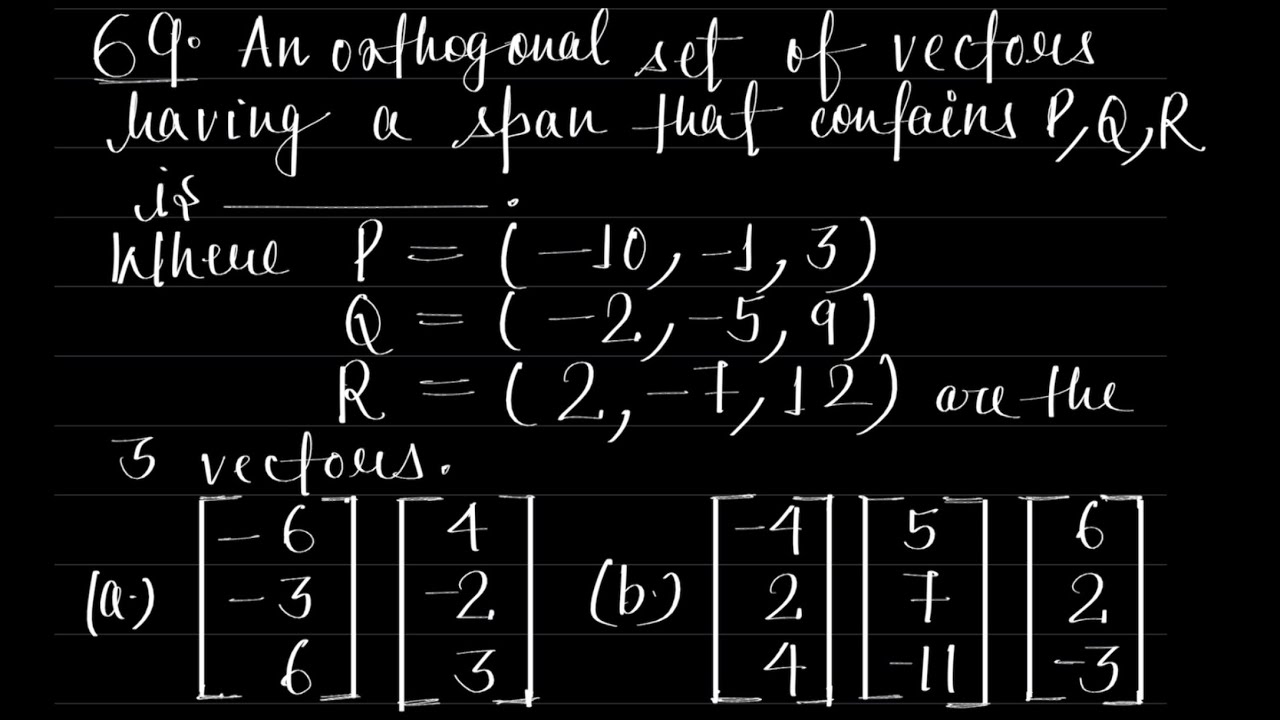 69. An orthogonal set of vectors
having a span that contains P,Q,R
is ________.
Where P = (-10, -1, 3)
Q = (-2, -5, 9)
R = (2, -7, 12) are the
3 vectors.
(a.) [-6 -3 6] [4 -2 3] (b.) [-4 2 4] [5 7 -11] [6 2 -3]